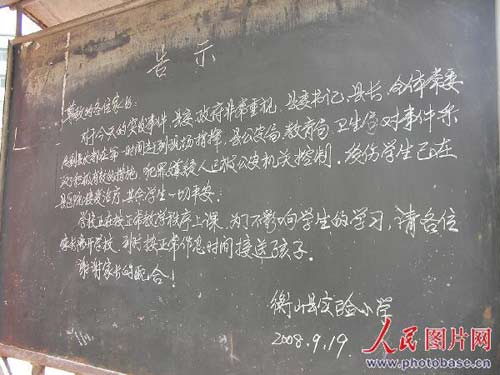 告示
尊敬的各位家长：
对于今天的突发事件，县委、政府非常重视，县委书记、县长、全体常委
都在第一时间赶到现场指挥，县公安局、教育局、卫生局对事件采
取了积极有效的措施，犯罪嫌疑人已被公安机关控制，受伤学生已在
县医院接受治疗，其余学生一切平安。
学校正在按正常教学秩序上课，为了不影响学生的学习，请各位
家长离开学校，到时按正常作息时间接送孩子。
谢谢家长的配合！
衡山县实验小学
2008.9.19
人民图片网
www.photobase.cn